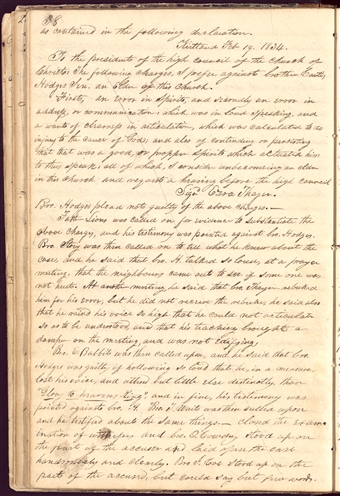 38
as contained in the following declaration.
Kirtland Feb 19. 1834.
To the presidents of the high council of the Church of
Christ. The following charges, I prefer against brother Curtis
Hodges Sen. an Elder of this Church.
Firstly, an error in spirit, and secondly an error in
address, or communication; which was in loud speaking, and
a want of clearness in articulation, which was calculated to do
injury to the cause of God; and also of continuing or persisting
that that was a good, or propper spirit which actuated him
to thus speak all of which, I consider unbecoming an elder
in this church and request a hearing before the high council
Sign Ezra Thayer.
Bro. Hodges plead not guilty of the above charges.—
Father Lions was called on for evidence to substantiate the
above charges, and his testimony was pointed against bro. Hodges.
Bro. Story was then called on to tell what he knew about the
case and he said that bro. H. talked so loud, at a prayer
meeting, that the neighbours came out to see if some one was
not hurt. At another meeting, he said that bro. Thayer rebuked
him for his error, but he did not receive the rebuke; he said also
that he raised his voice so high that he could not articulate
so as to be understood and that his teaching brought a
damp on the meeting, and was not edifying.
Bro. E Babbit was then called upon, and he said that bro.
Hodges was guilty of hollowing so loud that he, in a measure
lost his voice, and uttered but little else distinctly than
"Glory to heavens King," and in fine, his testimony was
pointed against bro. H. Tru was then called upon
and he testified about the same things.— Closed the exam-
ination of witnesses and bro. O. Cowdery stood up on
the part of the accuser and laid open the case
handsomely and clearly. Bro. J. Coe stood up on the
part of the accused, but could say but few words.